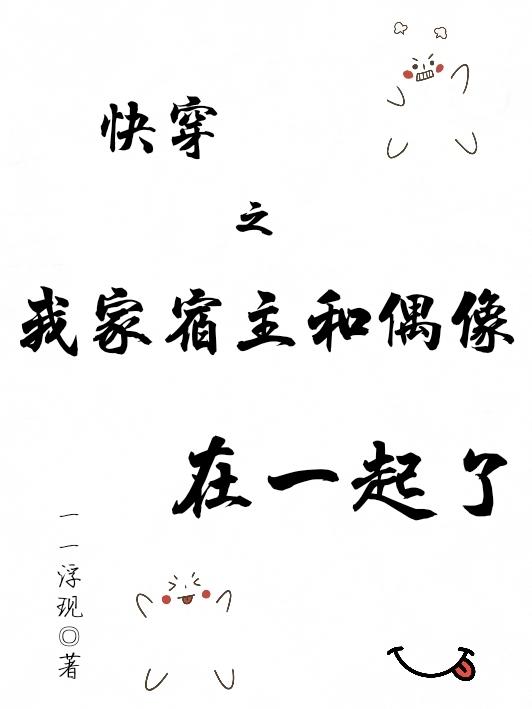 快穿
之
我家宿主和偶像
在一起了
一一浮现◎著